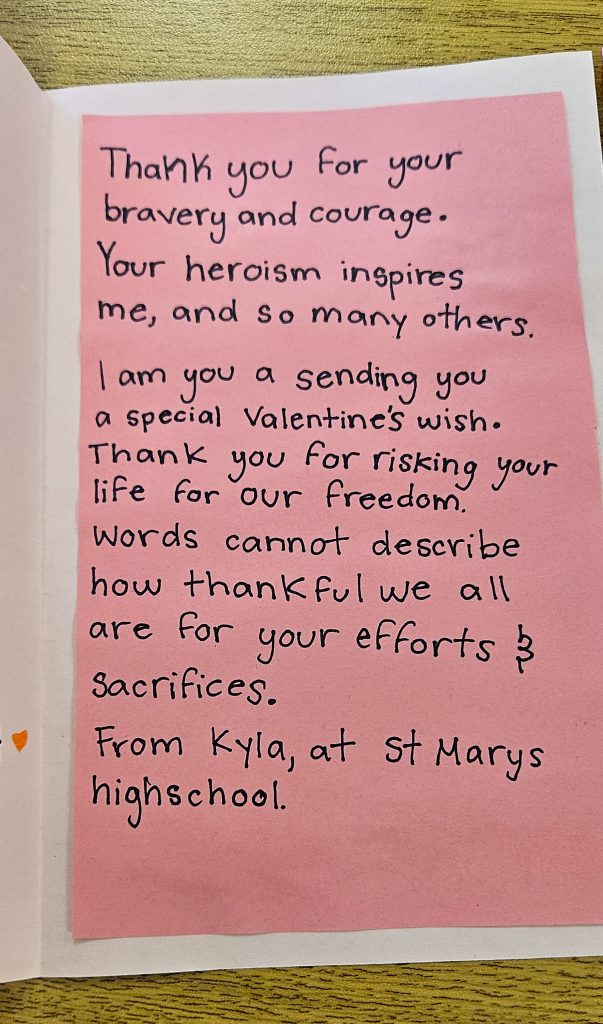 Thank you for your
bravery and courage.
Your heroism inspires
me, and so many others.
I am you a sending you
a special Valentine's wish.
Thank you for risking your
life for our freedom.
Words cannot describe
how thankful we all
are for your efforts &
sacrifices.
From Kyla, at St Marys
highschool.